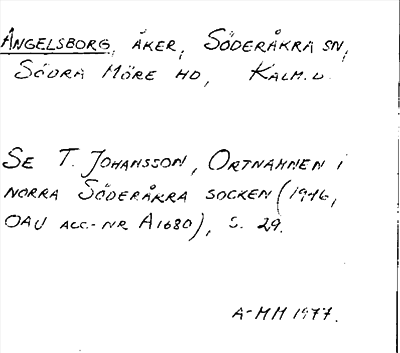 Ängelsborg, åker, Söderåkra sn,
Södra Möre hd, Kalm. l.
Se T. Johansson, Ortnamnen i
norra Söderåkra socken (1946,
OAU acc.-nr A1680), s. 29.
A-MH 1977.